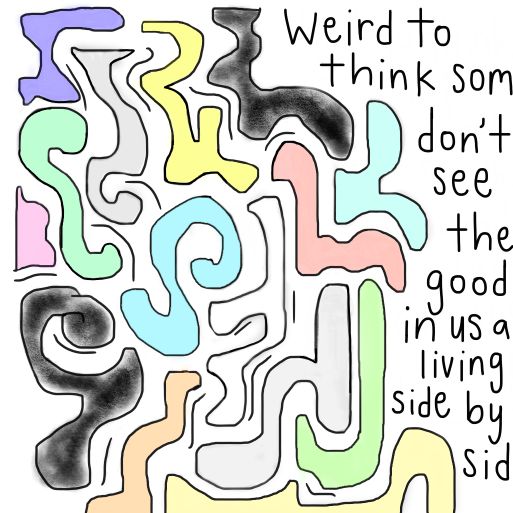 Weird to
think som
don't
see
the
good
in us a
living
side by
sid